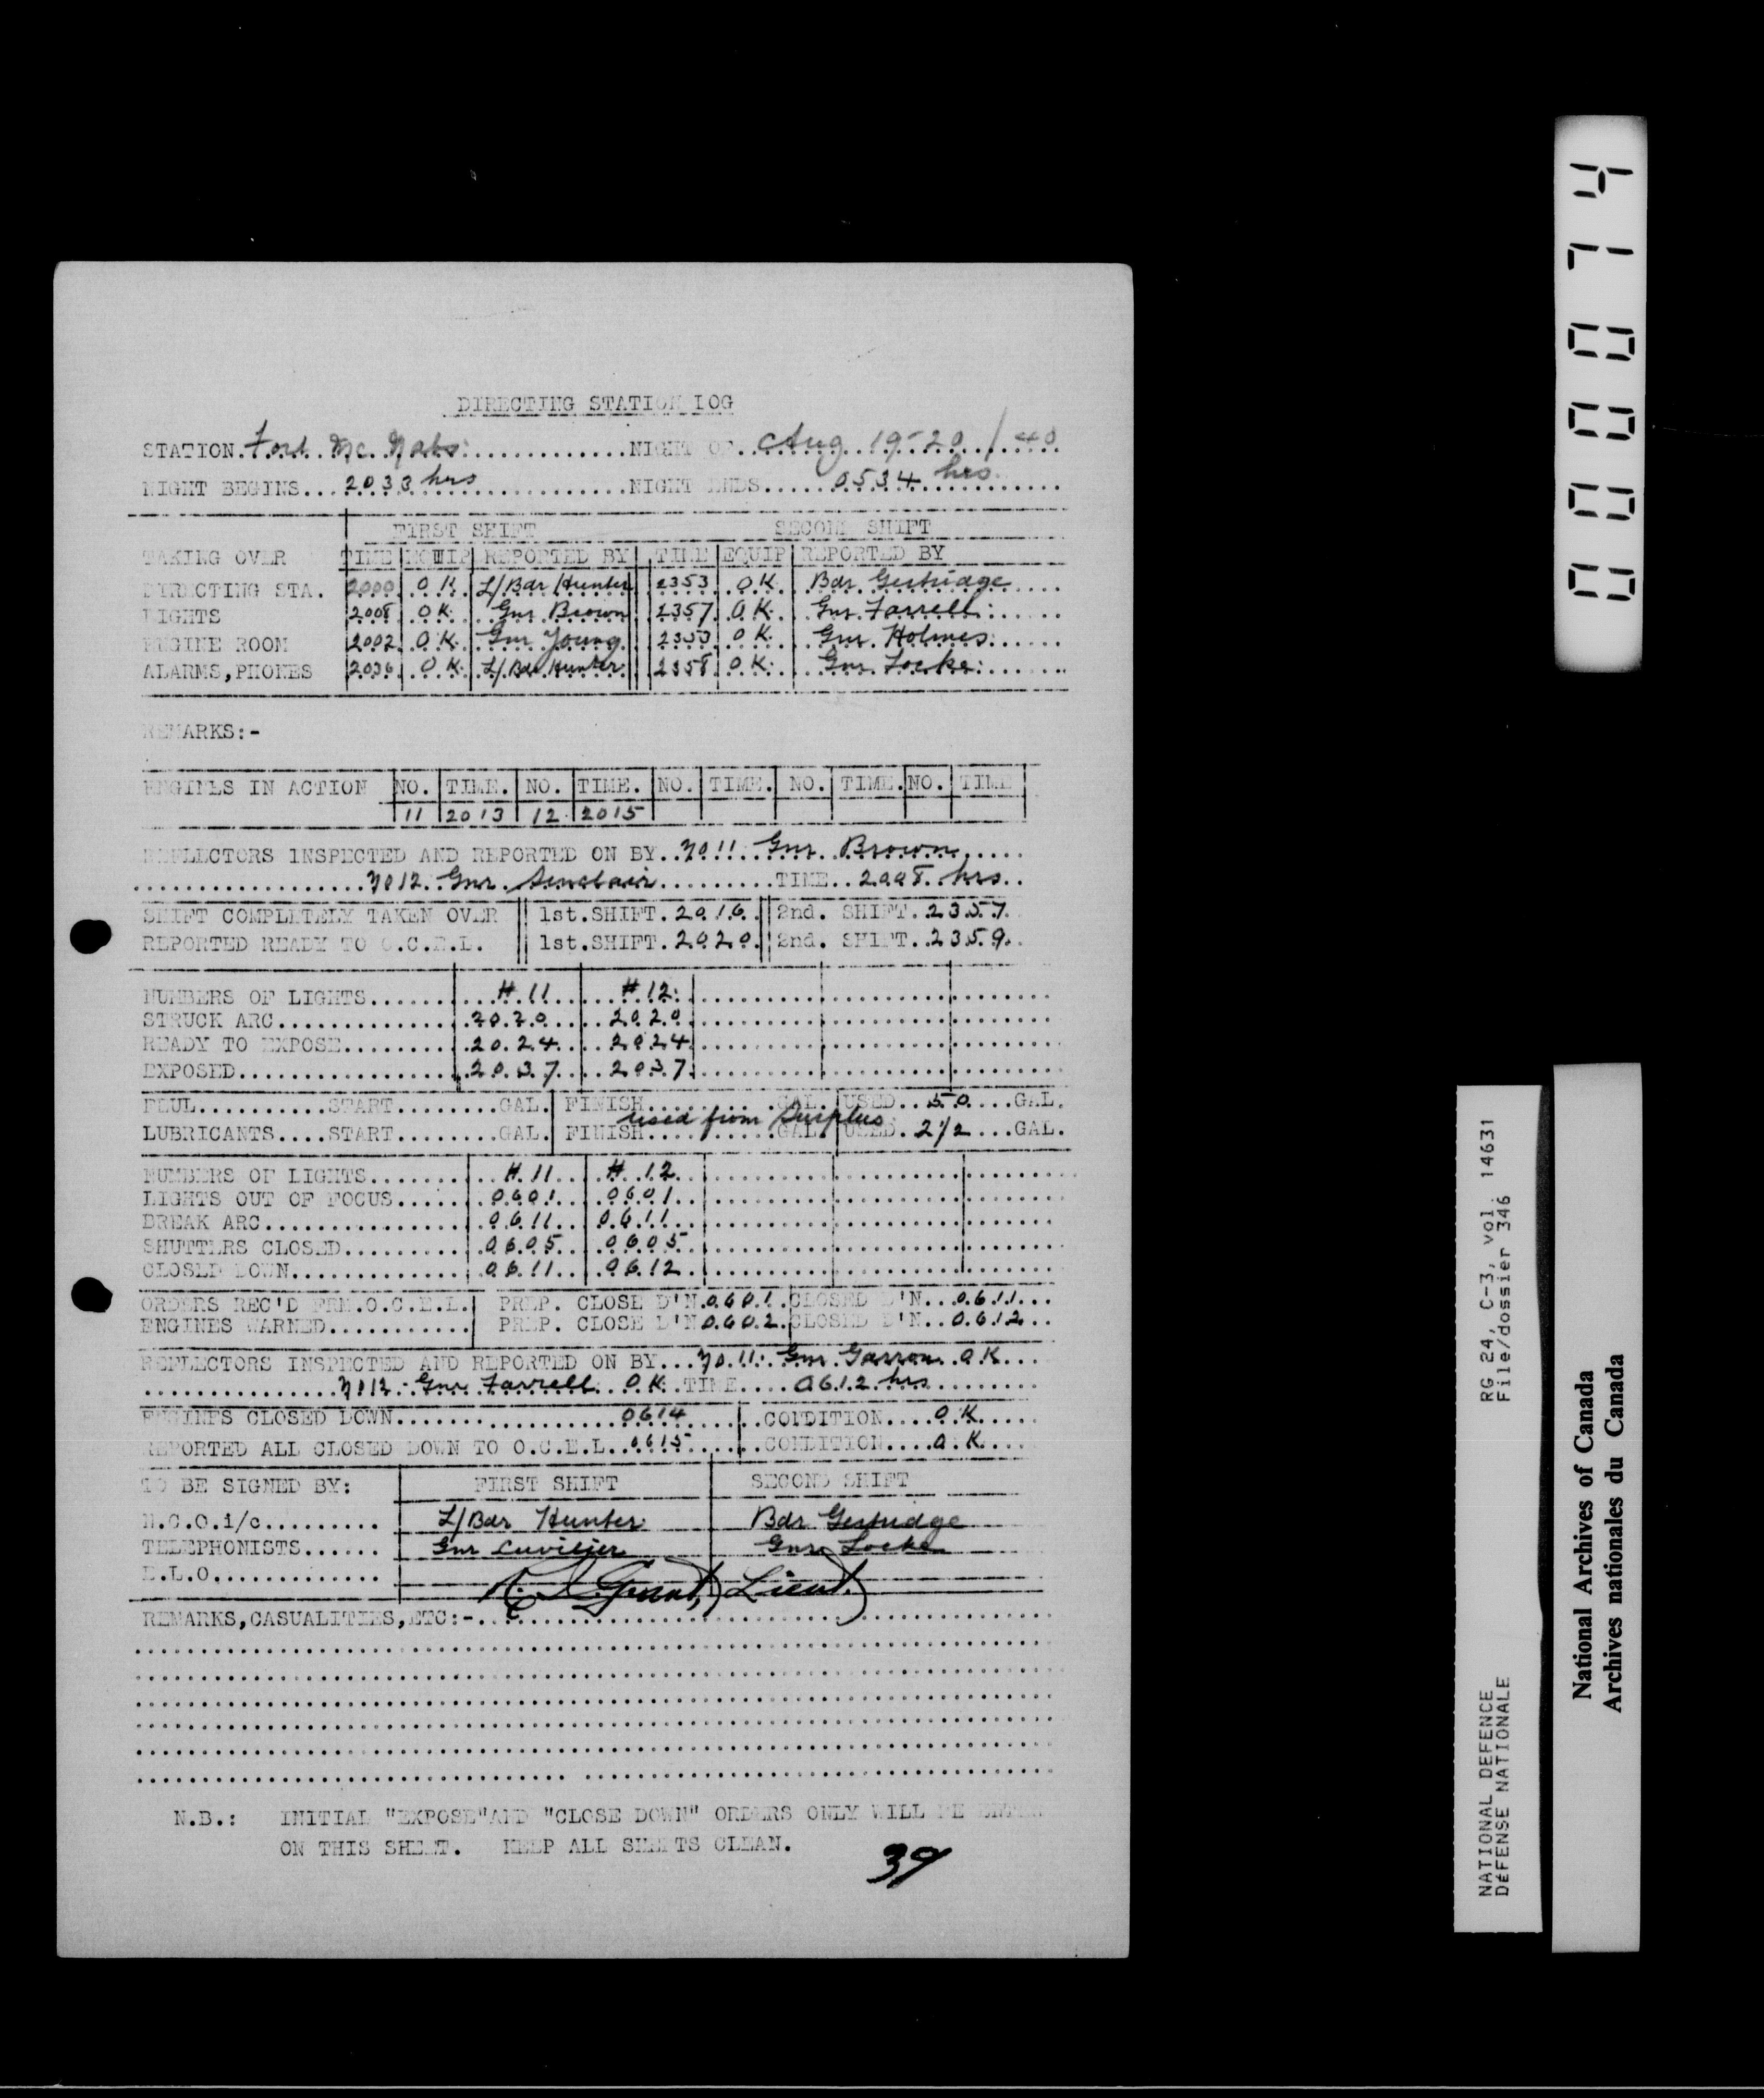 DIRECTING STATION LOG
STATION. Fort Mc Nabs. NIGHT OF. Aug 19-20/40
NIGHT BEGINS... 2033 hrs NIGHT ENDS..... 0534 hrs
FIRST SHIFT SECOND SHIFT
TAKING OVER TIME EQUIP REPORTED BY TIME EQUIP REPORTED BY
DIRECTING STA. 2000 OK L/Bdr Hunter 2353 OK. Bdr Gertridge
LIGHTS 2008 OK. Gnr Brown 2357 OK. Gnr Farrell
ENGINE ROOM 2002 OK. Gnr Young 2353 OK. Gnr Holmes
ALARMS,PHONES 2036 OK. L/Bdr Hunter 2358 OK. Gnr Locke
REMARKS:-
ENGINES IN ACTION NO. TIME. NO. TIME. NO. TIME. NO. TIME. NO. TIME
11 2013 12 2015
REFLECTORS INSPECTED AND REPORTED ON BY.. No 11. Gnr. Brown
No 12. Gnr. Sinclair TIME.. 2008. hrs.
SHIFT COMPLETELY TAKEN OVER 1st.SHIFT. 2016. 2nd. SHIFT. 2357.
REPORTED READY TO O.C.E.L. 1st.SHIFT. 2020. 2nd. SHIFT.. 2359.
NUMBERS OF LIGHTS # 11 # 12
STRUCK ARC 2020 2020
READY TO EXPOSE 2024 2024
EXPOSED 2037 2037
FUEL..........START........GAL. FINISH..........GAL. USED.. 50 ....GAL.
used from Surplus
LUBRICANTS....START........GAL. FINISH..........GAL. USED. 2 1/2 ....GAL.
NUMBERS OF LIGHTS # 11 # 12
LIGHTS OUT OF FOCUS 0601 0601
BREAK ARC 0611 0611
SHUTTERS CLOSED 0605 0605
CLOSED DOWN 0611 0612
ORDERS REC'D FRM.O.C.E.L. PREP. CLOSE D'N. 0601. CLOSED D'N... 0611...
ENGINES WARNED PREP. CLOSE D'N 0602. CLOSED D'N.. 0612..
REFLECTORS INSPECTED AND REPORTED ON BY... No. 11. Gnr. Garron. OK...
No 12. Gnr Farrell. OK. TIME.... 0612 hrs
ENGINES CLOSED DOWN 0614 CONDITION.... OK.
REPORTED ALL CLOSED DOWN TO O.C.E.L.. 0615 CONDITION.... O.K.
TO BE SIGNED BY: FIRST SHIFT SECOND SHIFT
N.C.O.i/c......... L/Bdr Hunter Bdr Gertridge
TELEPHONISTS...... Gnr Cuvilier Gnr Locke
E.L.O............. Grant, Lieut.
REMARKS,CASUALITIES,ETC:-
N.B.: INITIAL "EXPOSE"AND "CLOSE DOWN" ORDERS ONLY WILL BE
ON THIS SHEET. KEEP ALL SHEETS CLEAN.
39
0000714
RG 24, C-3, vol. 14631
File/dossier 346
NATIONAL DEFENCE
DÉFENSE NATIONALE
National Archives of Canada
Archives nationales du Canada